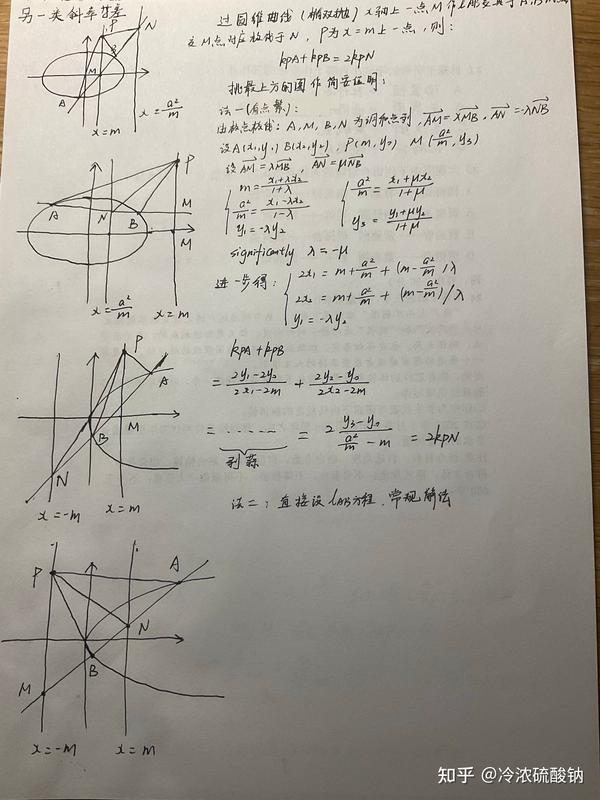 另一类斜率等差
过圆锥曲线(椭双抛)x轴上一点M作
交M点对应极线于N,P为x=m上一点,则:
kPA+kPB=2kPN
挑最上方的图作简要证明:
法一(有点繁):
由极点极线:A,M,B,N为调和点列,AM=λMB,AN=-λNB
设A(x₁,y₁) B(x₂,y₂),P(m,y₀) M(a²/m,y₃)
设AM=λMB,AN=μNB
m=(x₁+λx₂)/(1+λ)
a²/m=(x₁-λx₂)/(1-λ)
y₁=-λy₂
a²/m=(x₁+μx₂)/(1+μ)
y₃=(y₁+μy₂)/(1+μ)
significantly λ=-μ
进一步得:
2x₁=m+a²/m+(m-a²/m)λ
2x₂=m+a²/m+(m-a²/m)/λ
y₁=-λy₂
kPA+kPB
=(2y₁-2y₀)/(2x₁-2m)+(2y₂-y₀)/(2x₂-2m)
=......=2(y₃-y₀)/(a²/m-m)=2kPN
剥蒜
法二:直接设lAB方程,常规解法
P
N
B
M
A
x=a²/m
x=m
P
A
M
N
B
M
x=a²/m
x=m
P
A
M
B
N
x=-m
x=m
P
A
N
B
M
x=-m
x=m
知乎 @冷浓硫酸钠